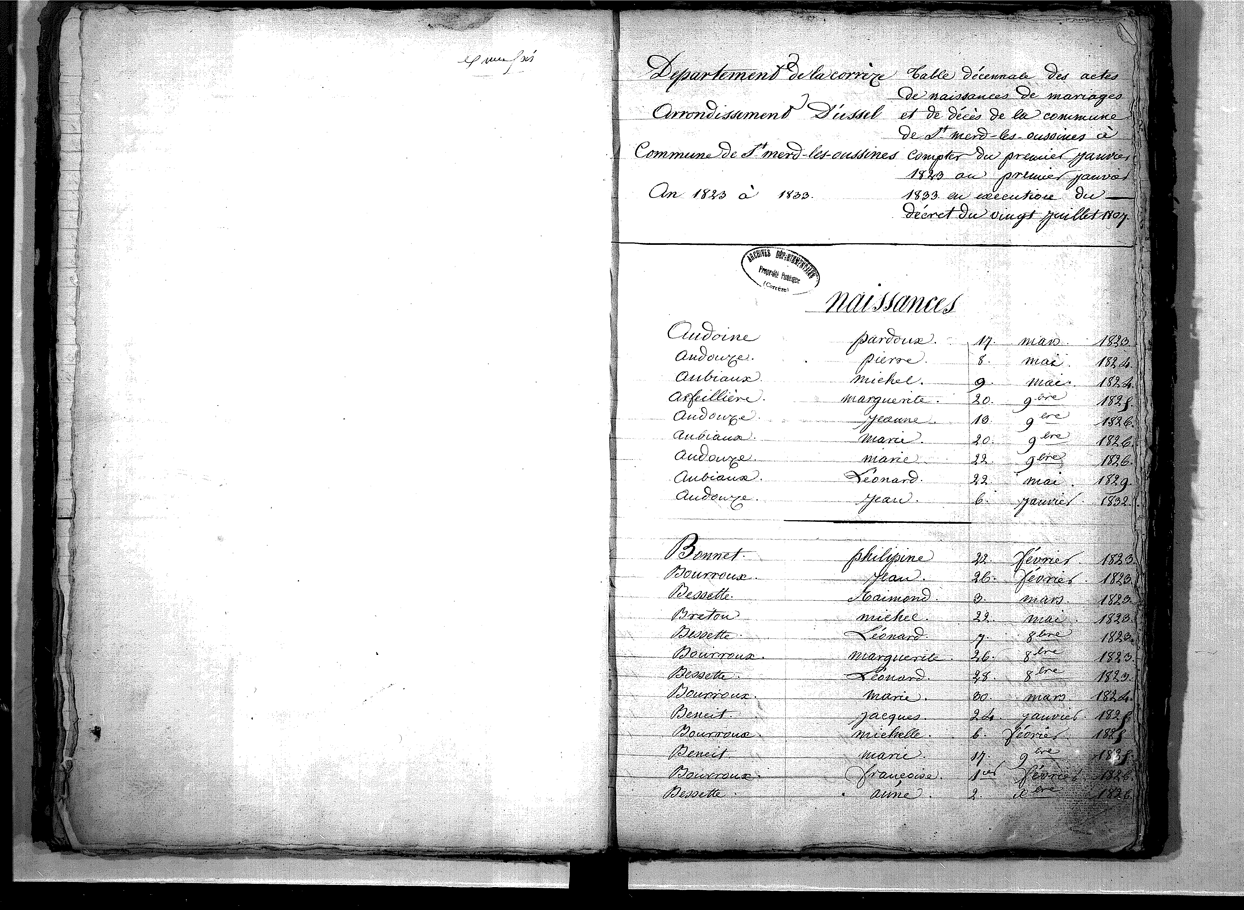 Departement de la corrèze
Arrondissement D'ussel
Commune de St merd-les-oussines
An 1823 à 1833.
Table décennale des actes
de naissances de mariages
et de décès de la commune
de St merd-les-oussines à
compter du premier janvier
1823 au premier janvier
1833 en execution du
décret du vingt juillet 1807.
ARCHIVES DÉPARTEMENTALES
Propriété Publique
(Corrèze)
naissances
Audoine pardoux. 17. mars. 1823.
Audouze. pierre. 8. mai. 1824.
Aubiaux. michel. 9. mai. 1824.
Arfeillière. marguerite. 20. 9bre 1825.
Audouze. jeanne. 13. 9bre 1826.
Aubiaux. marie. 20. 9bre 1826.
Audouze. marie. 22. 9bre 1826.
Aubiaux. Léonard. 22. mai. 1829.
Audouze. jean. 6. janvier. 1832.
Bonnet. philipine 22. février. 1823.
Bourroux. jean. 26. février. 1823.
Bessette. Raimond. 3. mars. 1823.
Breton michel. 22. mai. 1823.
Bessette. Léonard. 7. 8bre 1823.
Bourroux. marguerite. 26. 8bre 1823.
Bessette. Léonard. 28. 8bre 1823.
Bourroux. marie. 30. mars. 1824.
Beneit. jacques. 24. janvier. 1825.
Bourroux. michelle. 6. février. 1825.
Beneit. marie. 17. 9bre 1825.
Bourroux. françoise. 1er février. 1826.
Bessette. anne. 2. xbre 1826.